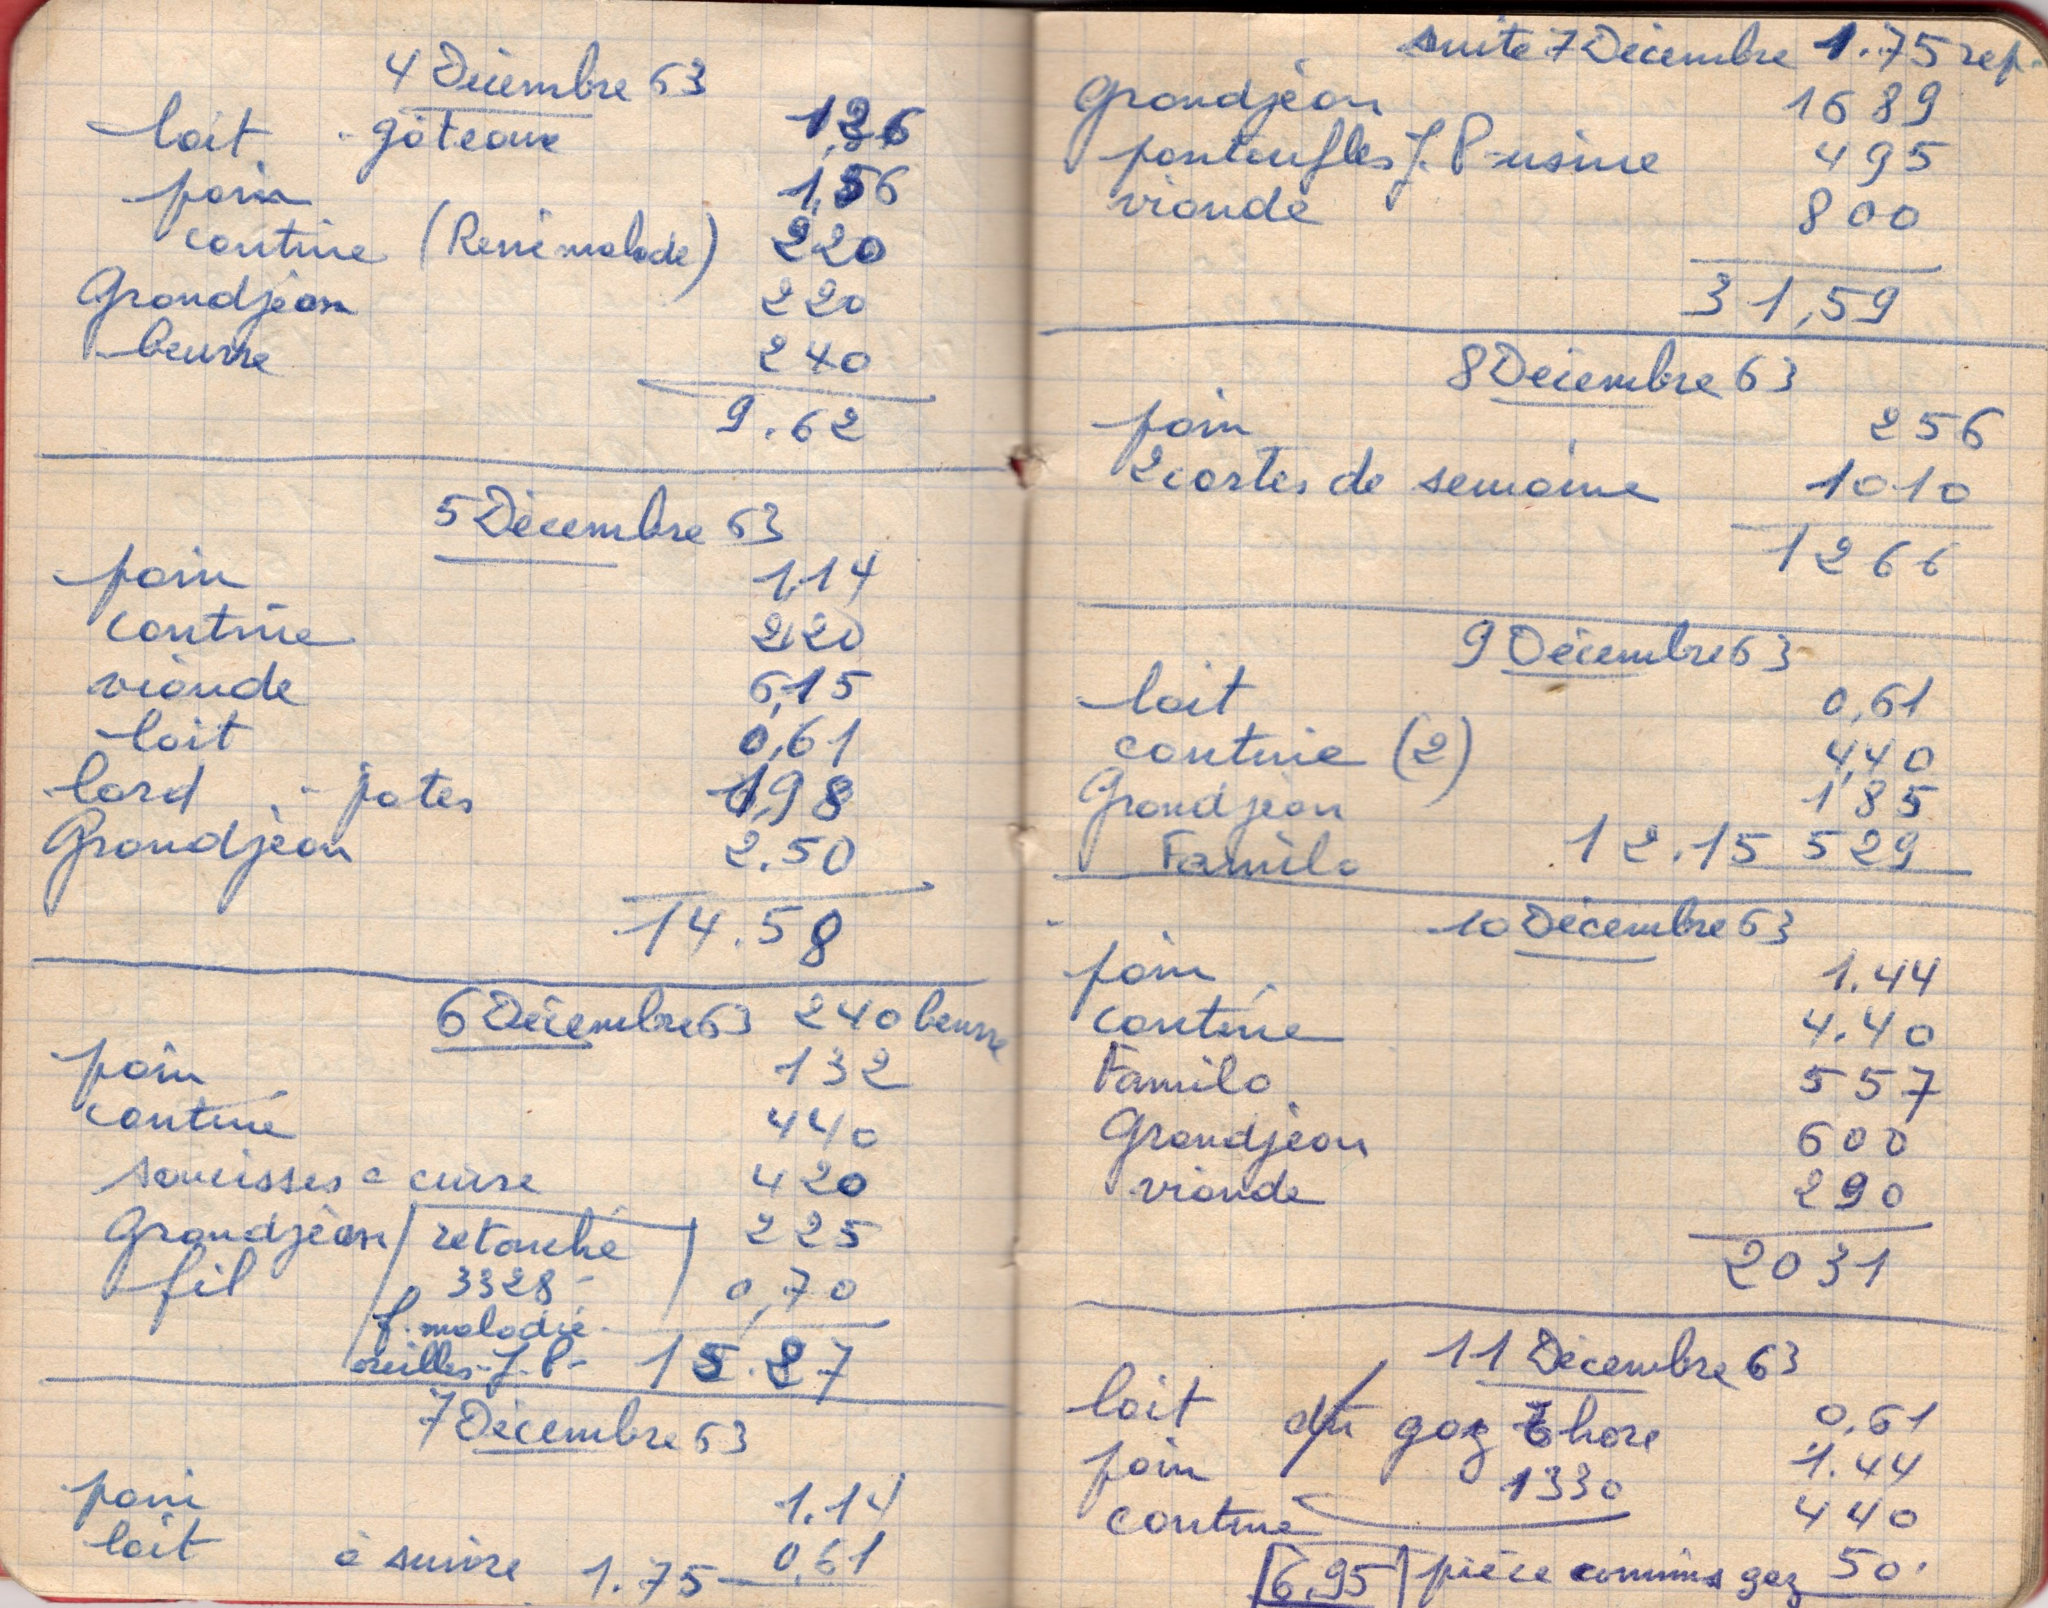 4 Décembre 63
lait - gâteaux 1,26
pain 1,56
cantine (René malade) 220
Grandjean 220
beurre 240
9.62
5 Décembre 63
pain 1,14
cantine 2,20
viande 6,15
lait 0,61
lard - pates 1,98
Grandjean 2.50
14.58
6 Décembre 63 240 beurre
pain 132
cantine 440
saucisses a cuire 420
Grandjean retouché 225
fil 3328- 0,70
f. maladie
oreilles J.P- 15.27
7 Décembre 63
pain 1.14
lait à suivre 1.75 0,61
suite 7 Décembre 1.75 rep.
Grandjean 1689
pantoufles J.P-usine 495
viande 800
31,59
8 Décembre 63
pain 256
2 cartes de semaine 1010
1266
9 Décembre 63
lait 0,61
cantine (2) 4,40
Grandjean 1,85
Familo 12.15 529
10 Décembre 63
pain 1.44
cantine 4.40
Familo 557
Grandjean 600
viande 290
2031
11 Décembre 63
lait dû gaz Thore 0,61
pain 1330 1.44
cantine 440
6,95 pièce commins gaz 50